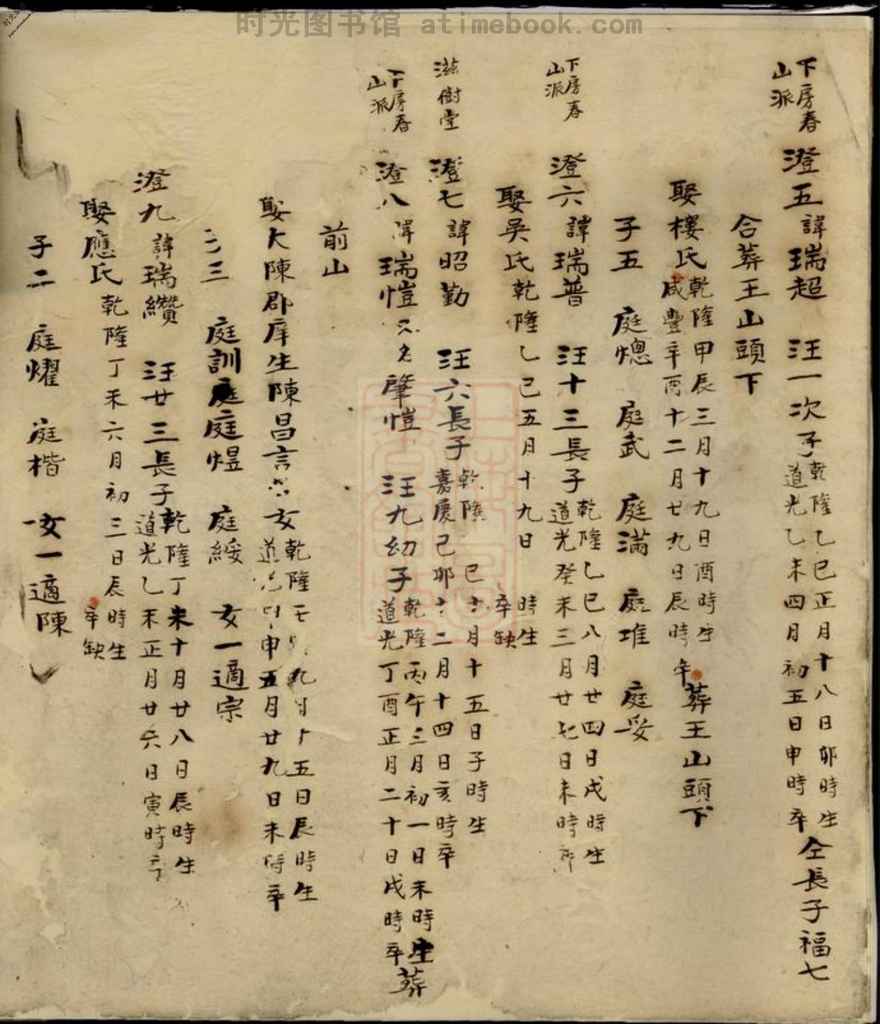 时光图书馆 atimebook.com
下房春山派
澄五 諱瑞超 汪一次子 乾隆乙巳正月十八日卯時生 道光乙未四月初五日申時卒 仝長子福七
合葬王山頭下
娶樓氏 乾隆甲辰三月十九日酉時生 咸豐辛酉十二月廿九日辰時卒 葬王山頭下
子五 庭熜 庭武 庭滿 庭堆 庭妥
下房春山派
澄六 諱瑞普 汪十三長子 乾隆乙巳八月廿四日戌時生 道光癸未三月廿七日未時卒
娶吴氏 乾隆乙巳五月十九日 時生 卒缺
滋樹堂
澄七 諱昭勤 汪六長子 乾隆 巳 月十五日子時生 嘉慶己卯十二月十四日亥時卒
下房春山派
澄八 諱瑞愷 又名肇愷 汪九幼子 乾隆丙午三月初一日未時生 道光丁酉正月二十日戌時卒 葬
前山
娶大陳郡庠生陳昌言公女 乾隆壬 九月十五日辰時生 道光 申五月廿九日未時卒
子三 庭訓 庭煜 庭綏 女一適宗
澄九 諱瑞纘 汪廿三長子 乾隆丁未十月廿八日辰時生 道光乙未正月廿六日寅時卒
娶應氏 乾隆丁未六月初三日辰時生 卒缺
子二 庭燿 庭楷 女一適陳